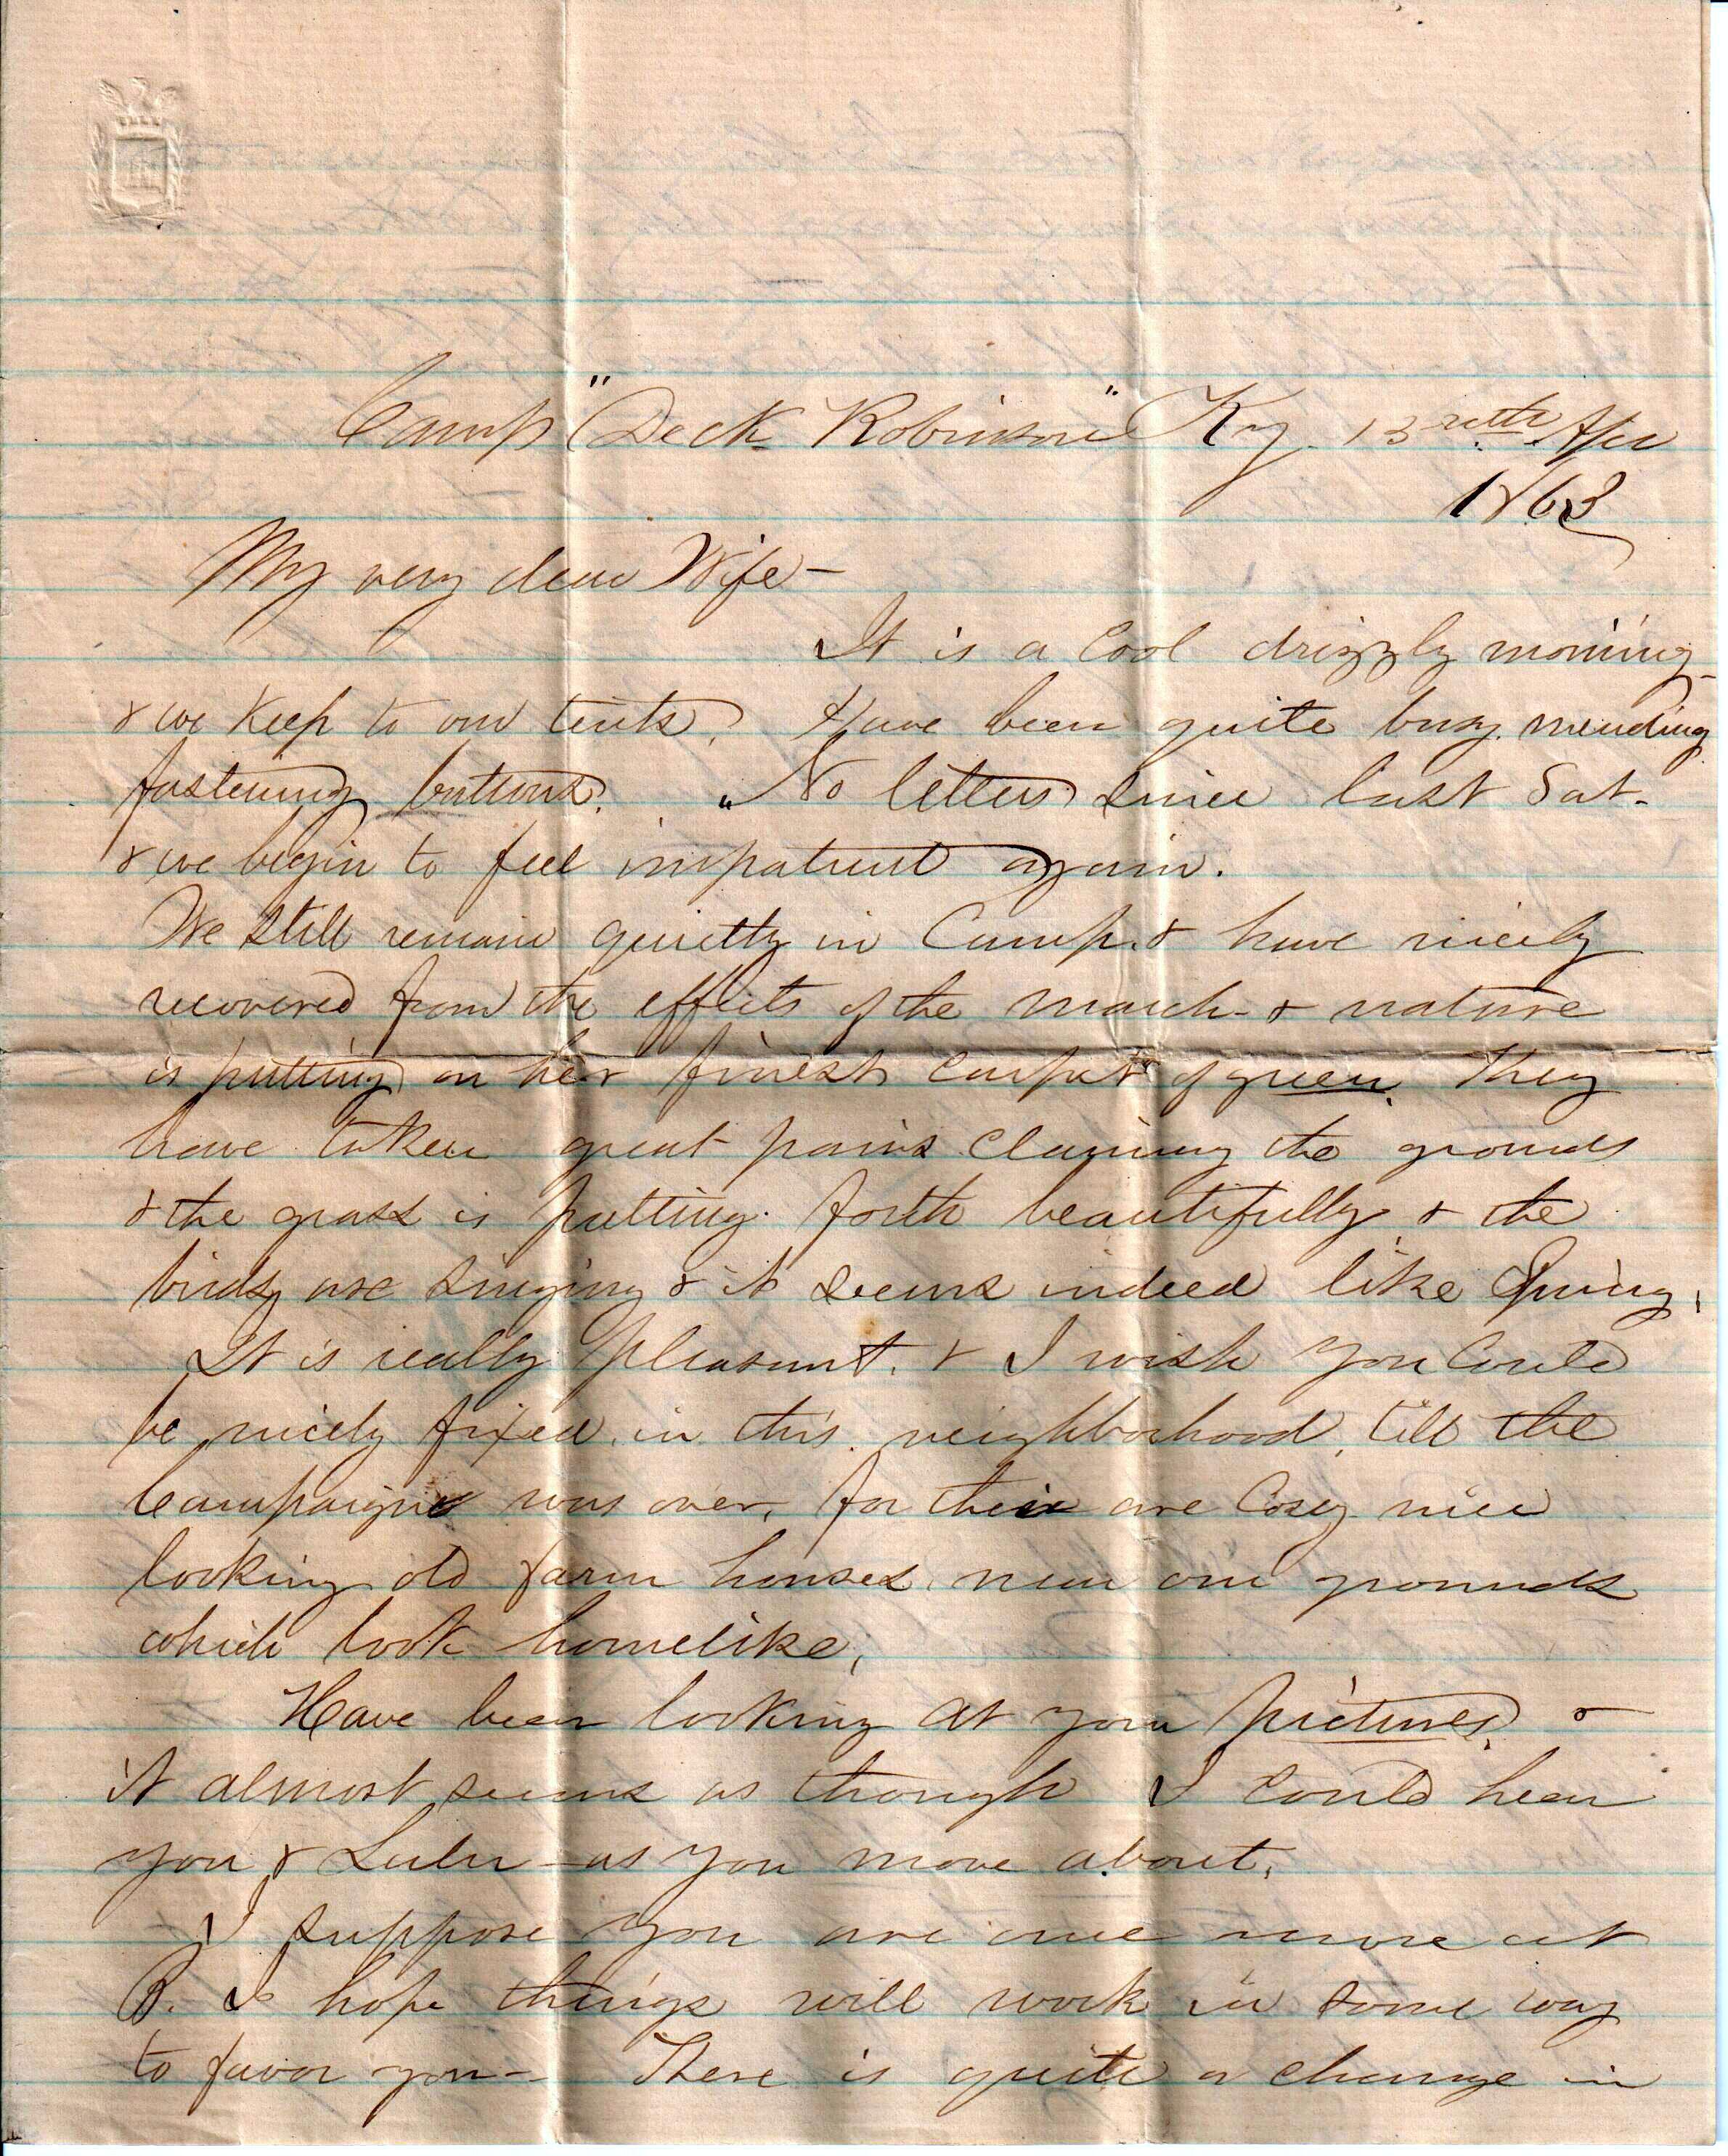 Camp "Deck Robinson" Ky. 13th Apr
1863
My very dear Wife -
It is a Cool drizzly morning
& we Keep to our tents. Have been quite busy mending
fastening buttons. No letters since last Sat-
& we begin to feel impatient again.
We still remain quietly in Camp. & have nicely
recovered from the effects of the march - & nature
is putting on her finest carpet of green. They
have taken great pains cleaning the grounds
& the grass is putting forth beautifully & the
birds are singing & it seems indeed like Spring.
It is really pleasant. & I wish you Could
be nicely fixed in this neighborhood till the
Campaign was over, for their are Cosey nice
looking old farm houses near our grounds
which look homelike.
Have been looking at your pictures. &
it almost seems as though I could hear
you & Lulu - as you move about.
I suppose you are once more at
B. I hope things will work in some way
to favor you - There is quite a change in